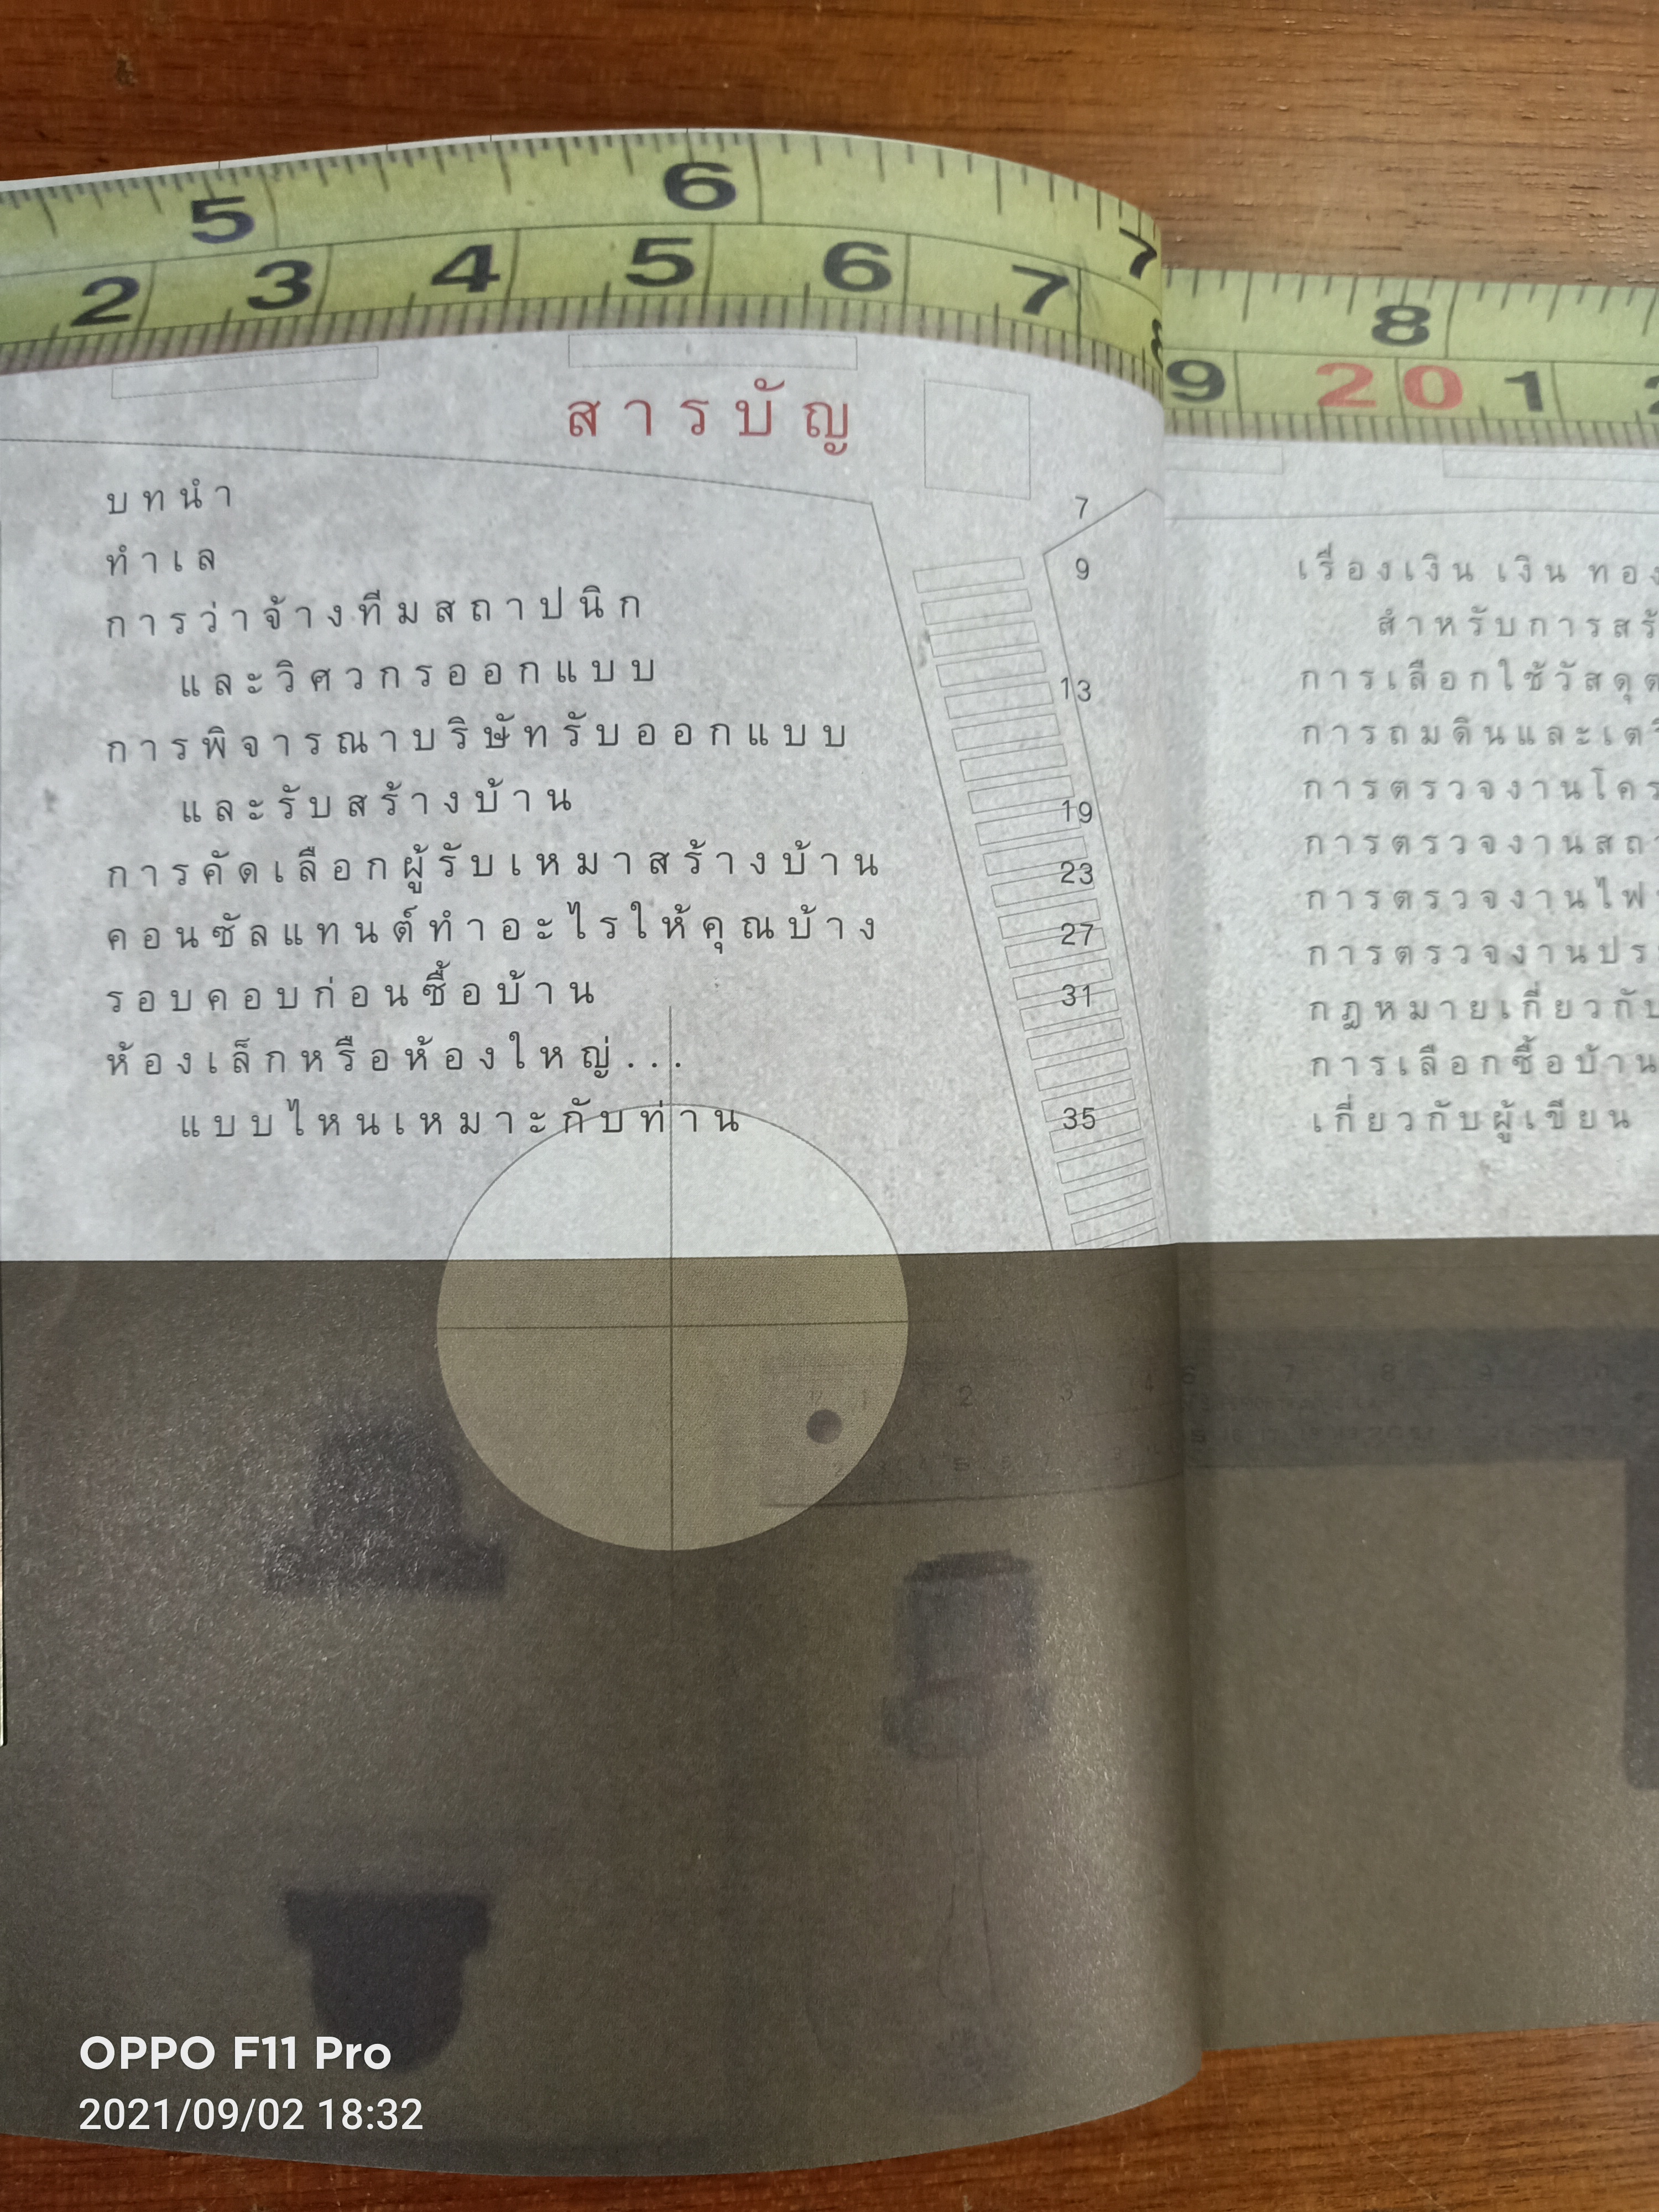 5 6 7
2 3 4 5 6 7
8
9 20 1
สารบัญ
บทนำ 7
ทำเล 9
การว่าจ้างทีมสถาปนิก
และวิศวกรออกแบบ 13
การพิจารณาบริษัทรับออกแบบ
และรับสร้างบ้าน 19
การคัดเลือกผู้รับเหมาสร้างบ้าน 23
คอนซัลแทนต์ทำอะไรให้คุณบ้าง 27
รอบคอบก่อนซื้อบ้าน 31
ห้องเล็กหรือห้องใหญ่...
แบบไหนเหมาะกับท่าน 35
เรื่องเงิน เงิน ทอง
สำหรับการ
การเลือกใช้วัสดุ
การถมดินและ
การตรวจงาน
การตรวจงาน
การตรวจงาน
การตรวจงาน
กฎหมายเกี่ยวกับ
การเลือกซื้อบ้าน
เกี่ยวกับผู้เขียน
OPPO F11 Pro
2021/09/02 18:32